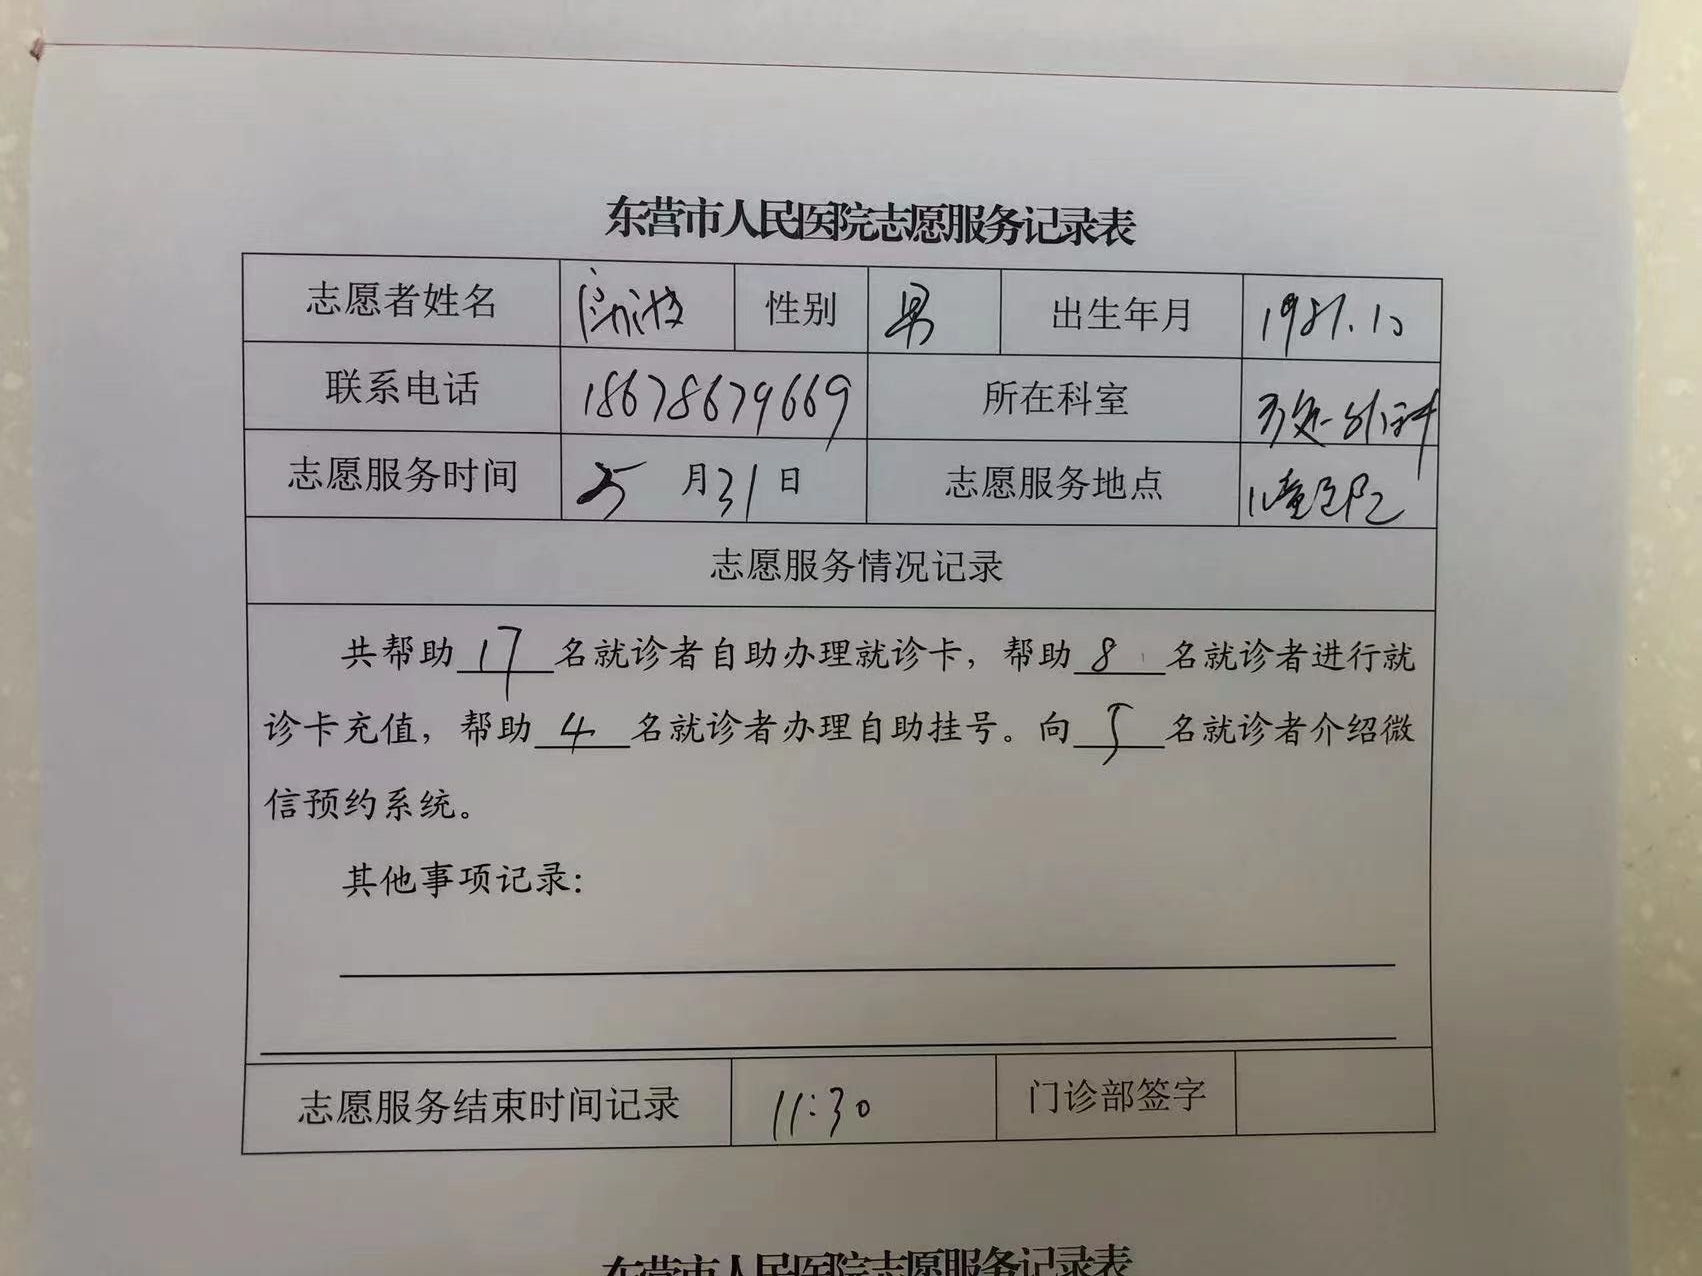 东营市人民医院志愿服务记录表
志愿者姓名 性别 男 出生年月 1987.10
联系电话 18678679669 所在科室 外科
志愿服务时间 5月31日 志愿服务地点 儿童医院
志愿服务情况记录
共帮助17名就诊者自助办理就诊卡，帮助8名就诊者进行就
诊卡充值，帮助4名就诊者办理自助挂号。向5名就诊者介绍微
信预约系统。
其他事项记录:
志愿服务结束时间记录 11:30 门诊部签字
东营市人民医院志愿服务记录表